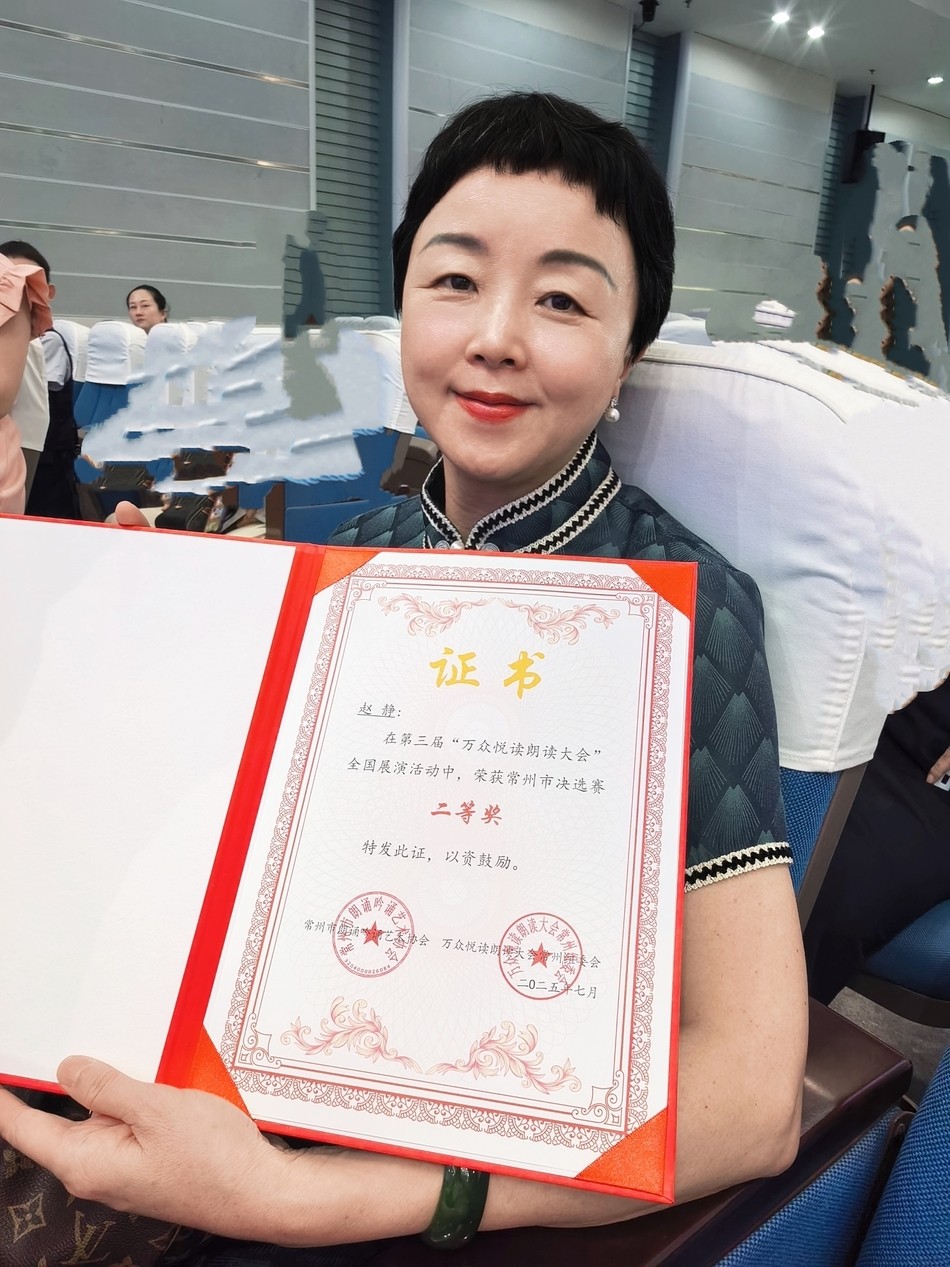 证书
赵静：
在第三届“万众悦读朗读大会”
全国展演活动中，荣获常州市决选赛
二等奖
特发此证，以资鼓励。
常州市朗诵吟诵艺术协会 万众悦读朗读大会常州组委会
二〇二五年七月